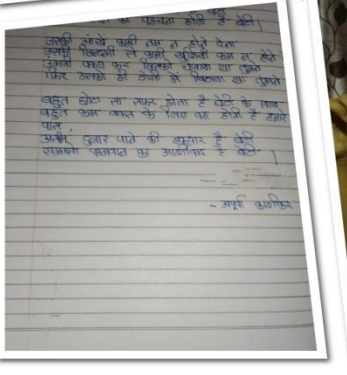 का पहचान होती है बेटी।
उसकी आंखें कभी नम न होने देना
उसकी जिन्दगी से कभी खुशियां कम न होने
उंगली पकड़ कर जिसको चलाया था तुमने
फिर उसको ही डोली में बिठाया था तुमने
बहुत छोटा सा सफर होता है बेटी के साथ
बहुत कम वक्त के लिए वह होती है हमारे
पास
असीम दुलार पाने की हकदार है बेटी
समझो भगवान का आशीर्वाद है बेटी।
- अपूर्वा